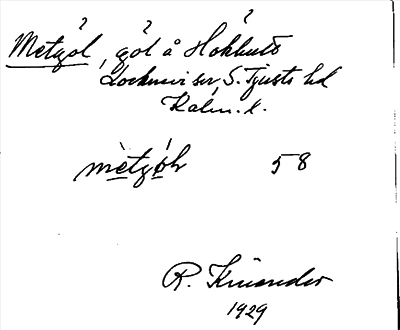 ? ? ?
Metgöl, göl å Hokhult
Locknevi sn S. Tjusts hd
Kalm. l.
mètgö́l 58
R. Kinander
1929